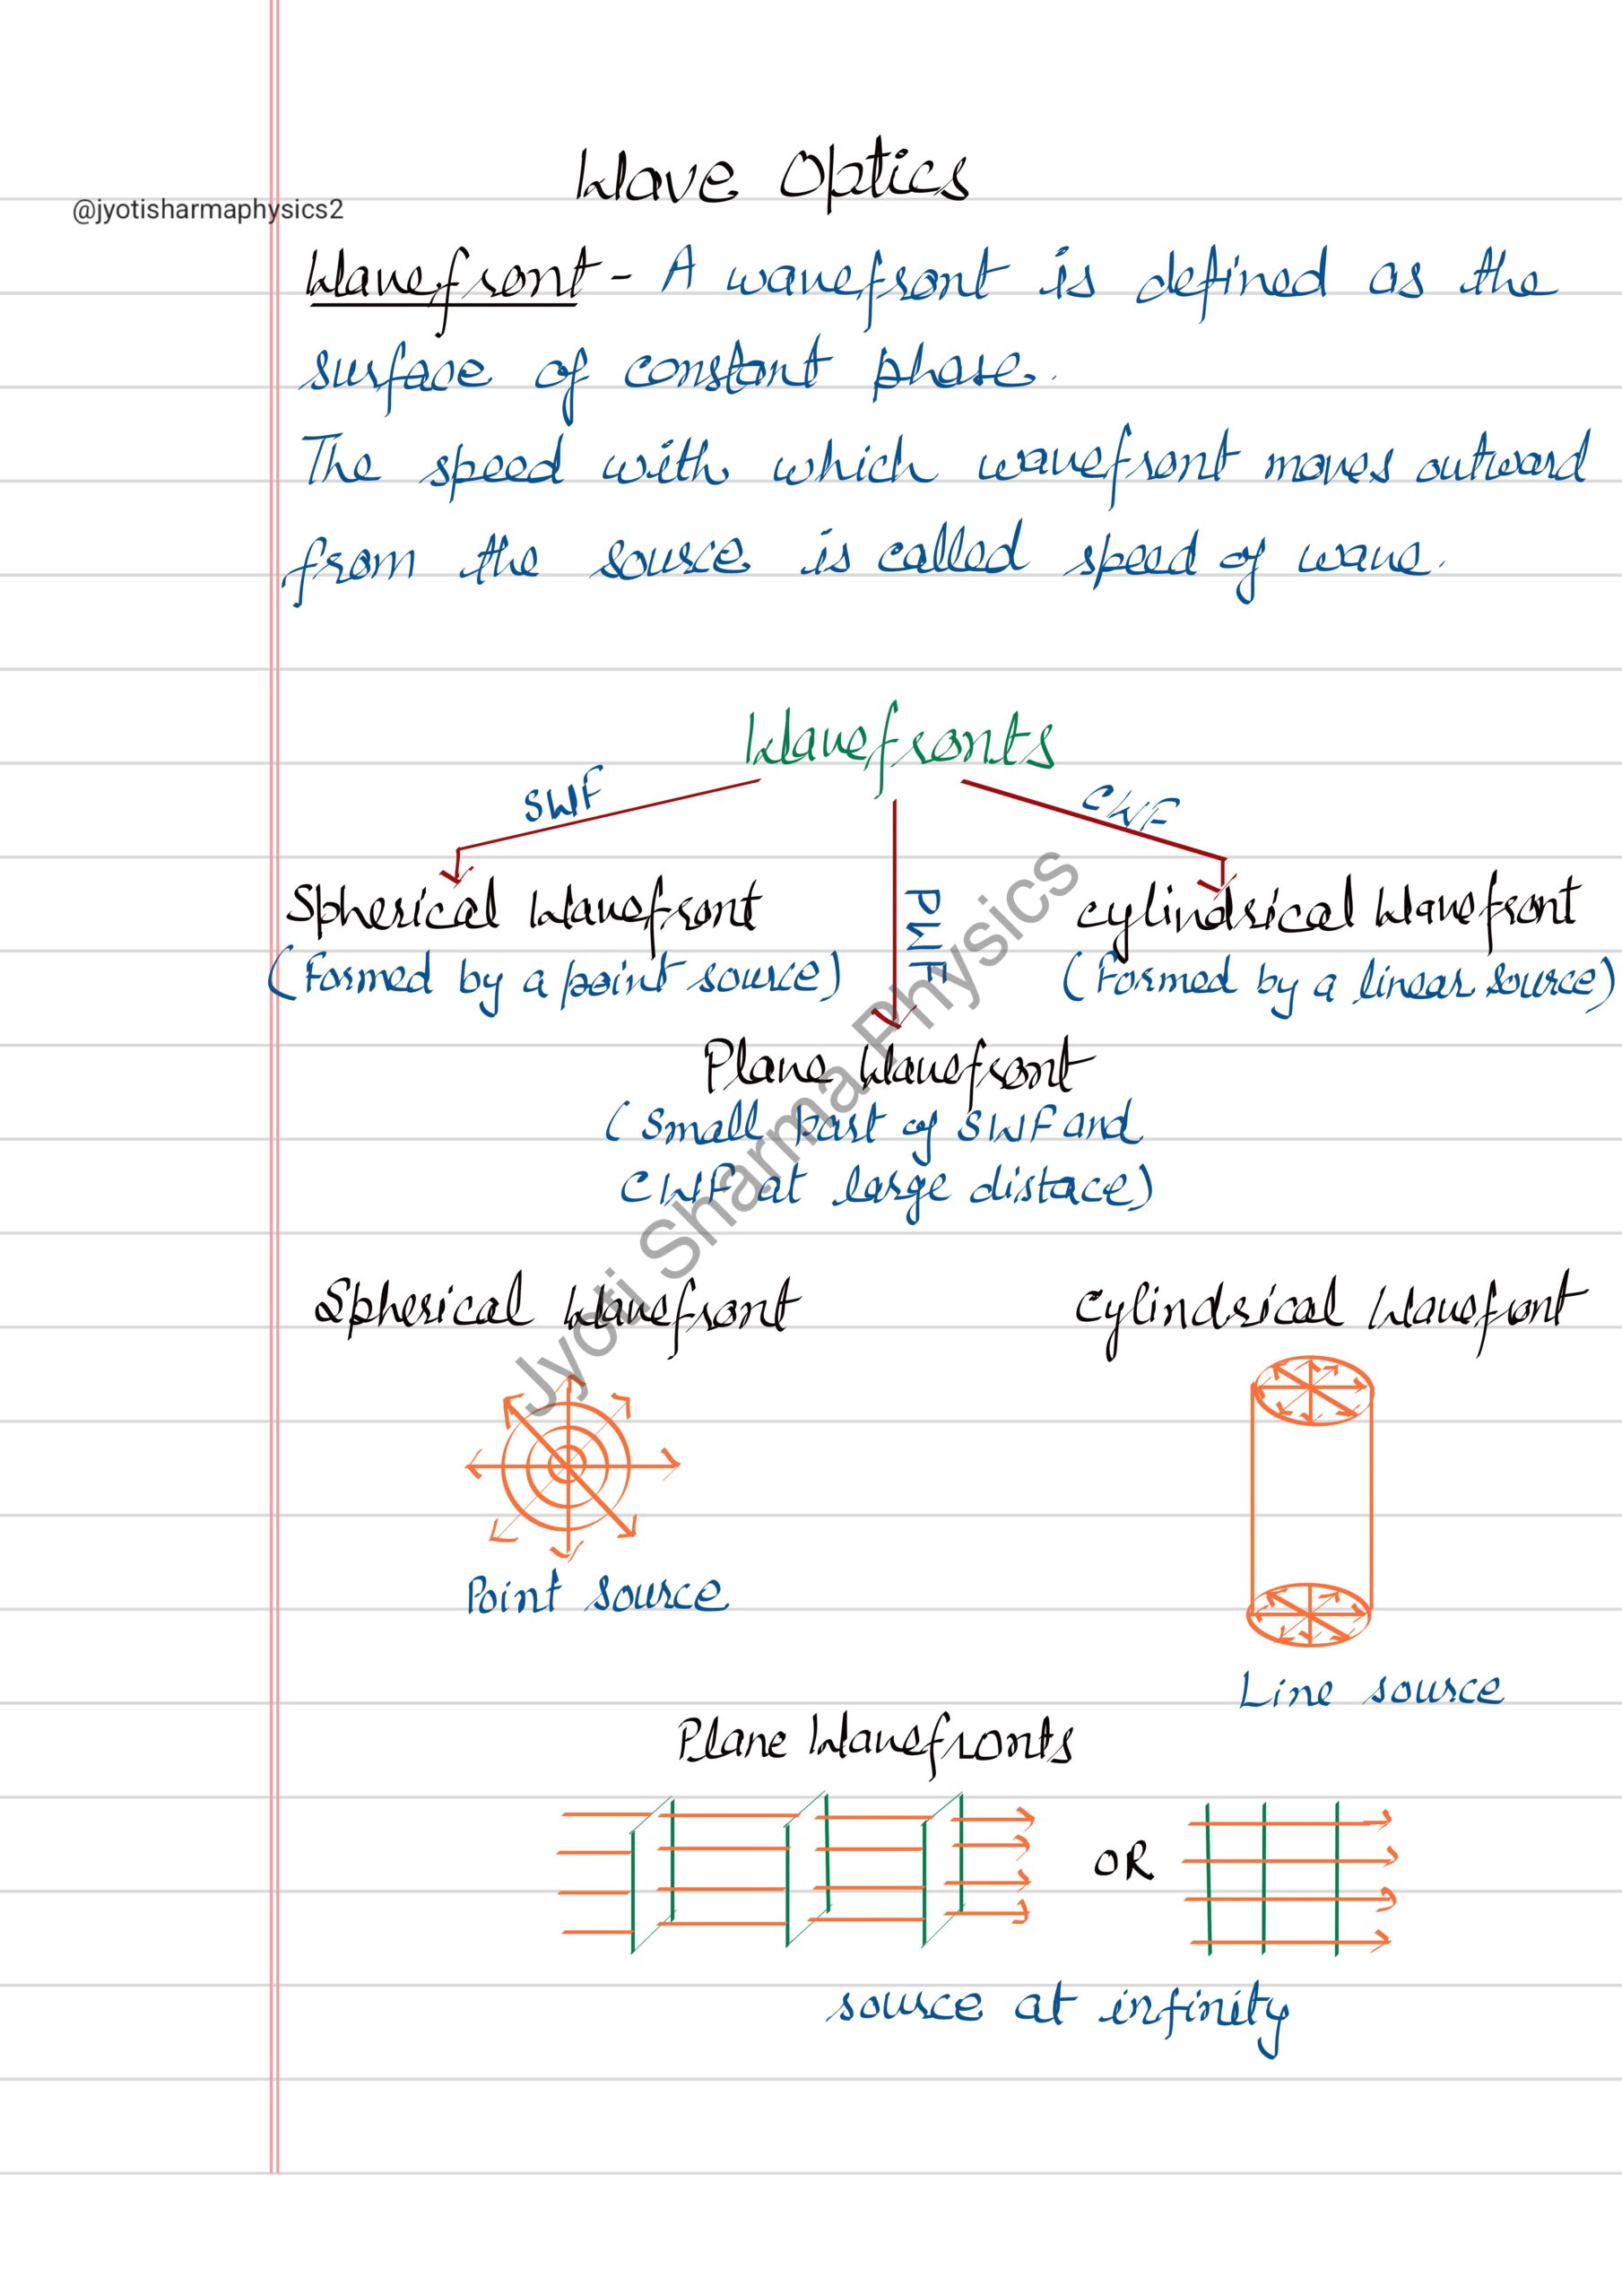 Wave Optics
@jyotisharmaphysics2
Wavefront - A wavefront is defined as the
surface of constant phase.
The speed with which wavefront moves outward
from the source is called speed of wave.
Wavefronts
SWF
CWF
PWF
Spherical Wavefront
(Formed by a point source)
cylindrical Wavefront
(Formed by a linear source)
Plane Wavefront
(Small part of SWF and
CWF at large distace)
Jyoti Sharma Physics
Spherical Wavefront
cylindrical Wavefront
Point source
Line source
Plane Wavefronts
OR
source at infinity